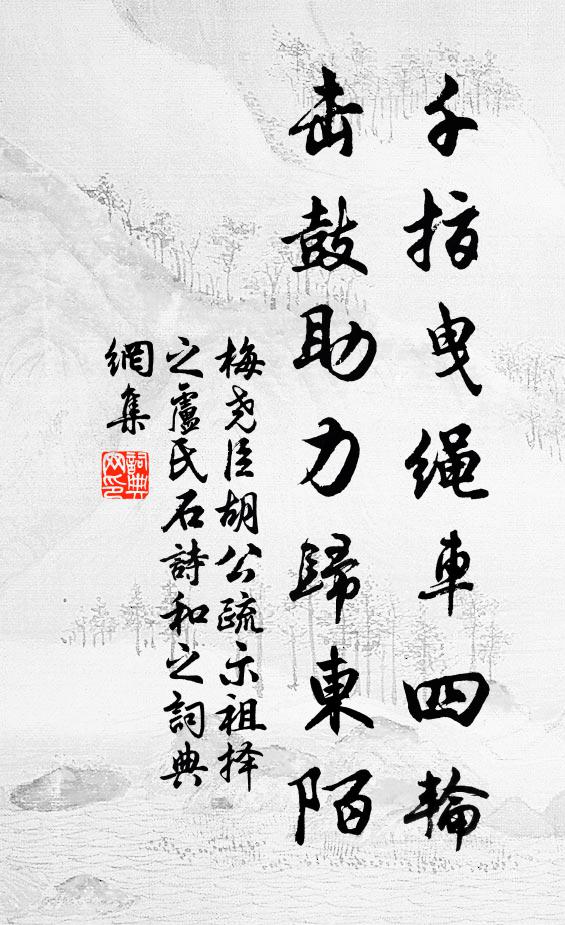 千指曳繩車四輪
击鼓助力歸東陌
梅尧臣胡公疏示祖择
之盧氏石詩和之詞典
網集
詞典
网印